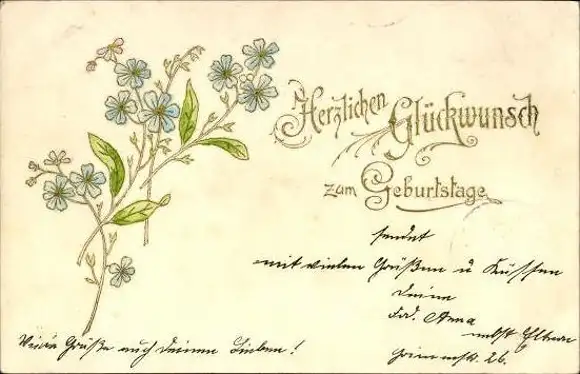 Herzlichen
Glückwunsch
zum Geburtstage
sendet
mit vielen Grüßen u Küssen
Deine
Anna
nebst Eltern
26.
Viele Grüße auch Deinen Lieben!